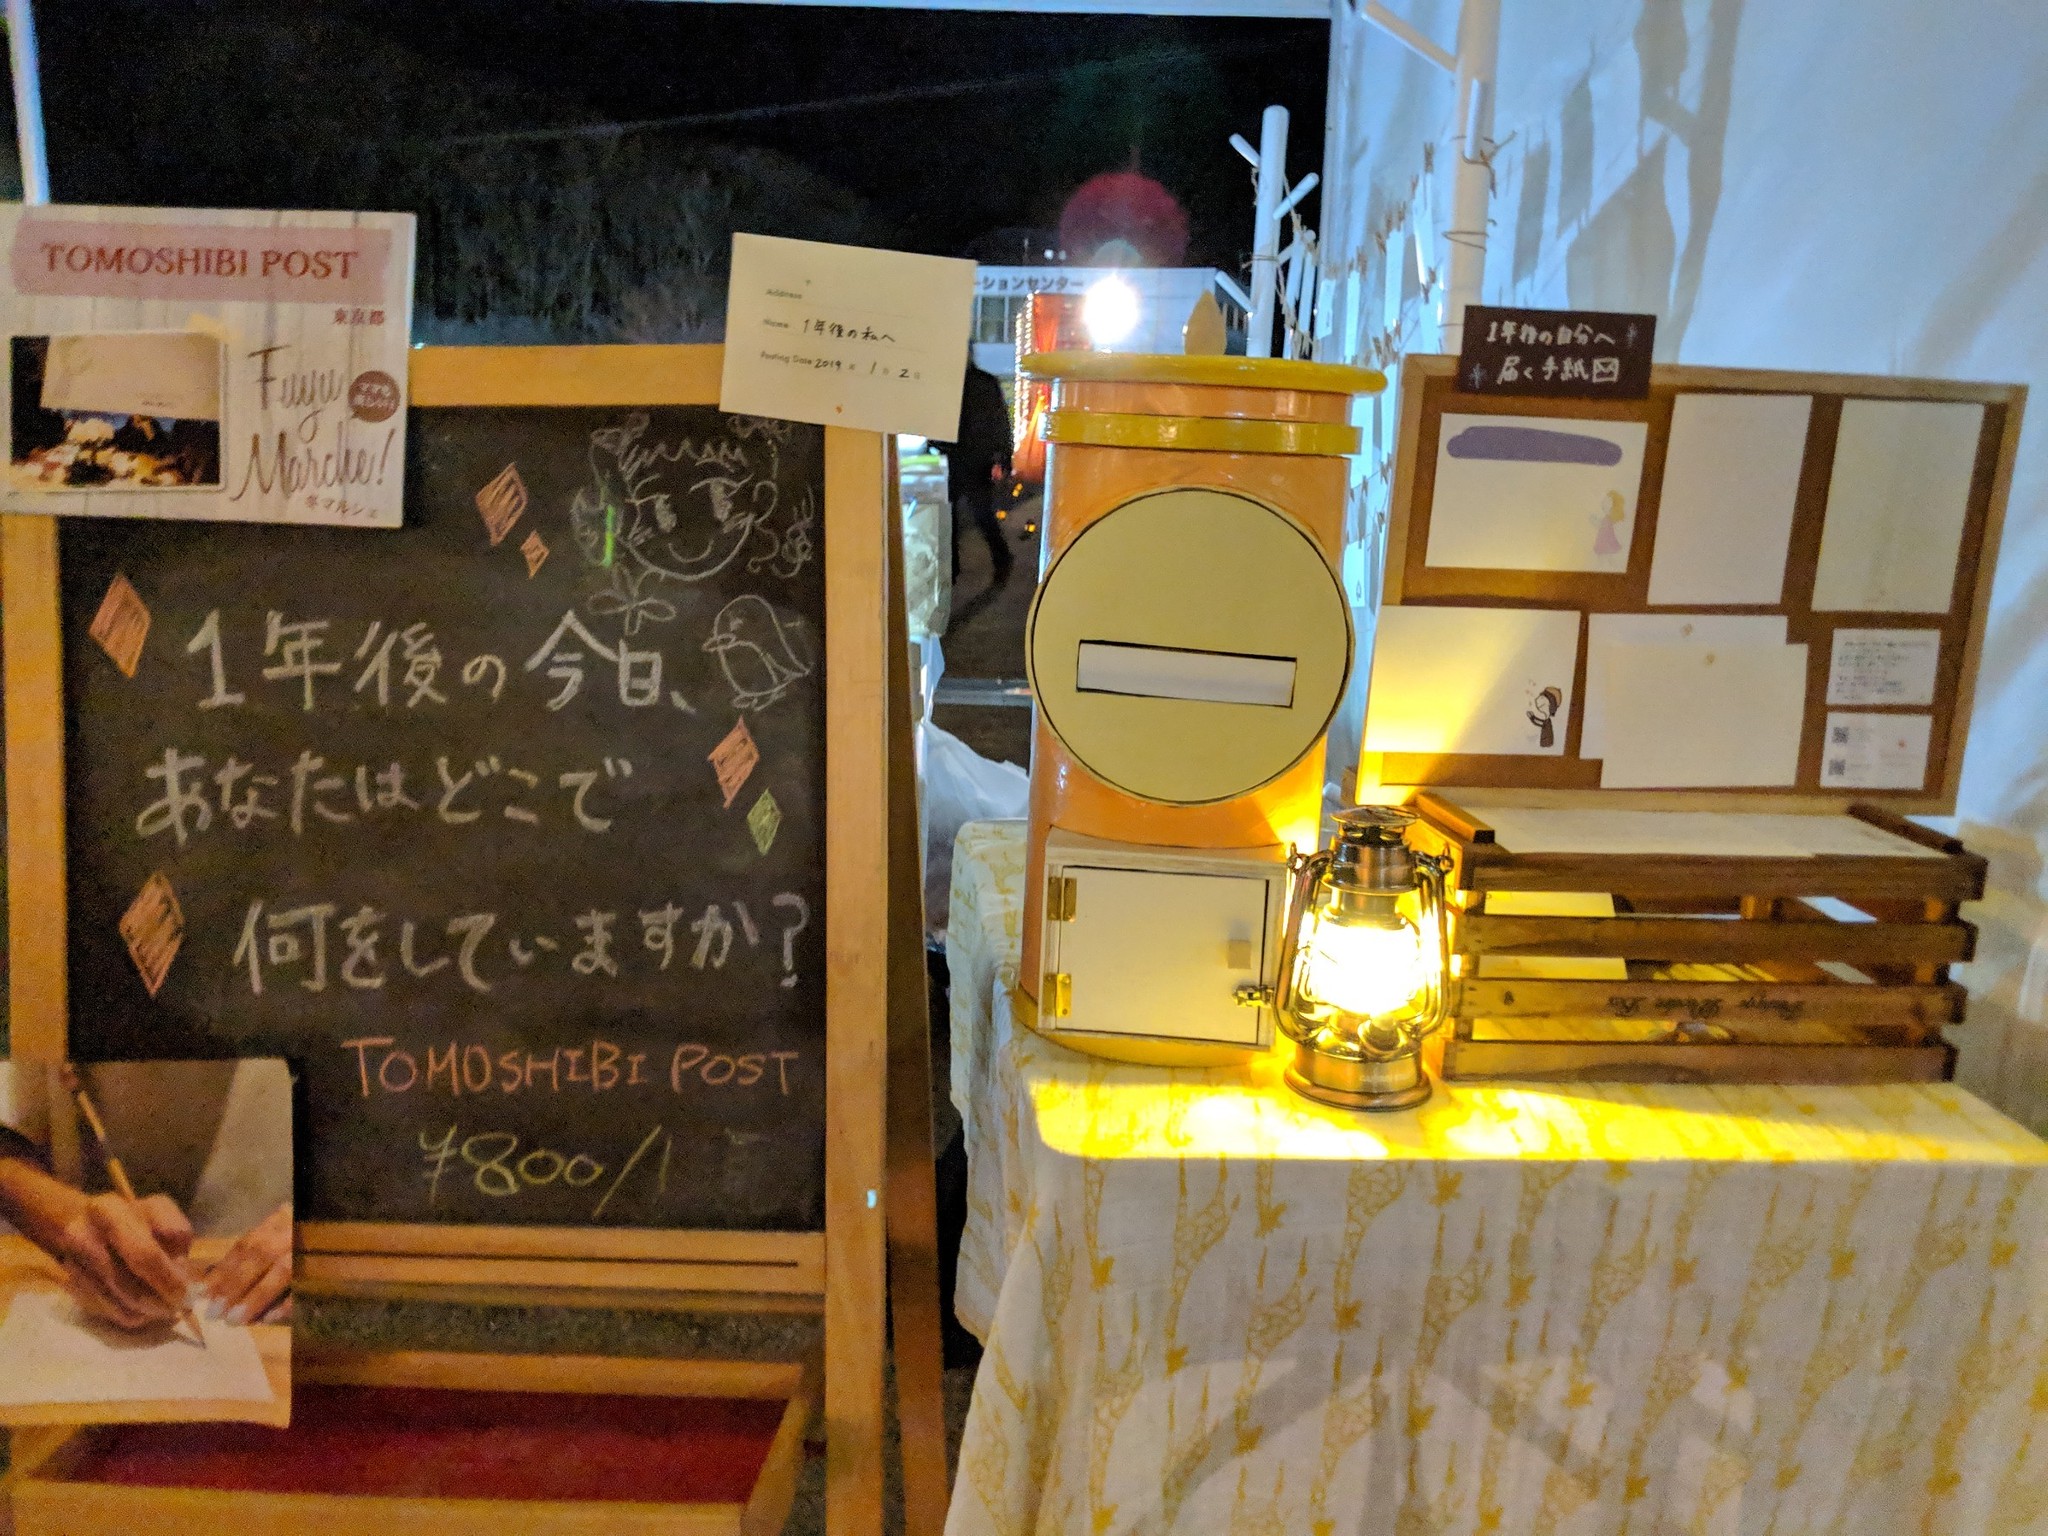 TOMOSHIBI POST
東京都
Fuyu
Marche!
冬マルシェ
Address
Name 1年後の私へ
Posting Date 2019 年 1 月 2 日
ーションセンター
1年後の自分へ
届く手紙
1年後の今日、
あなたはどこで
何をしていますか?
TOMOSHIBI POST
¥800/1